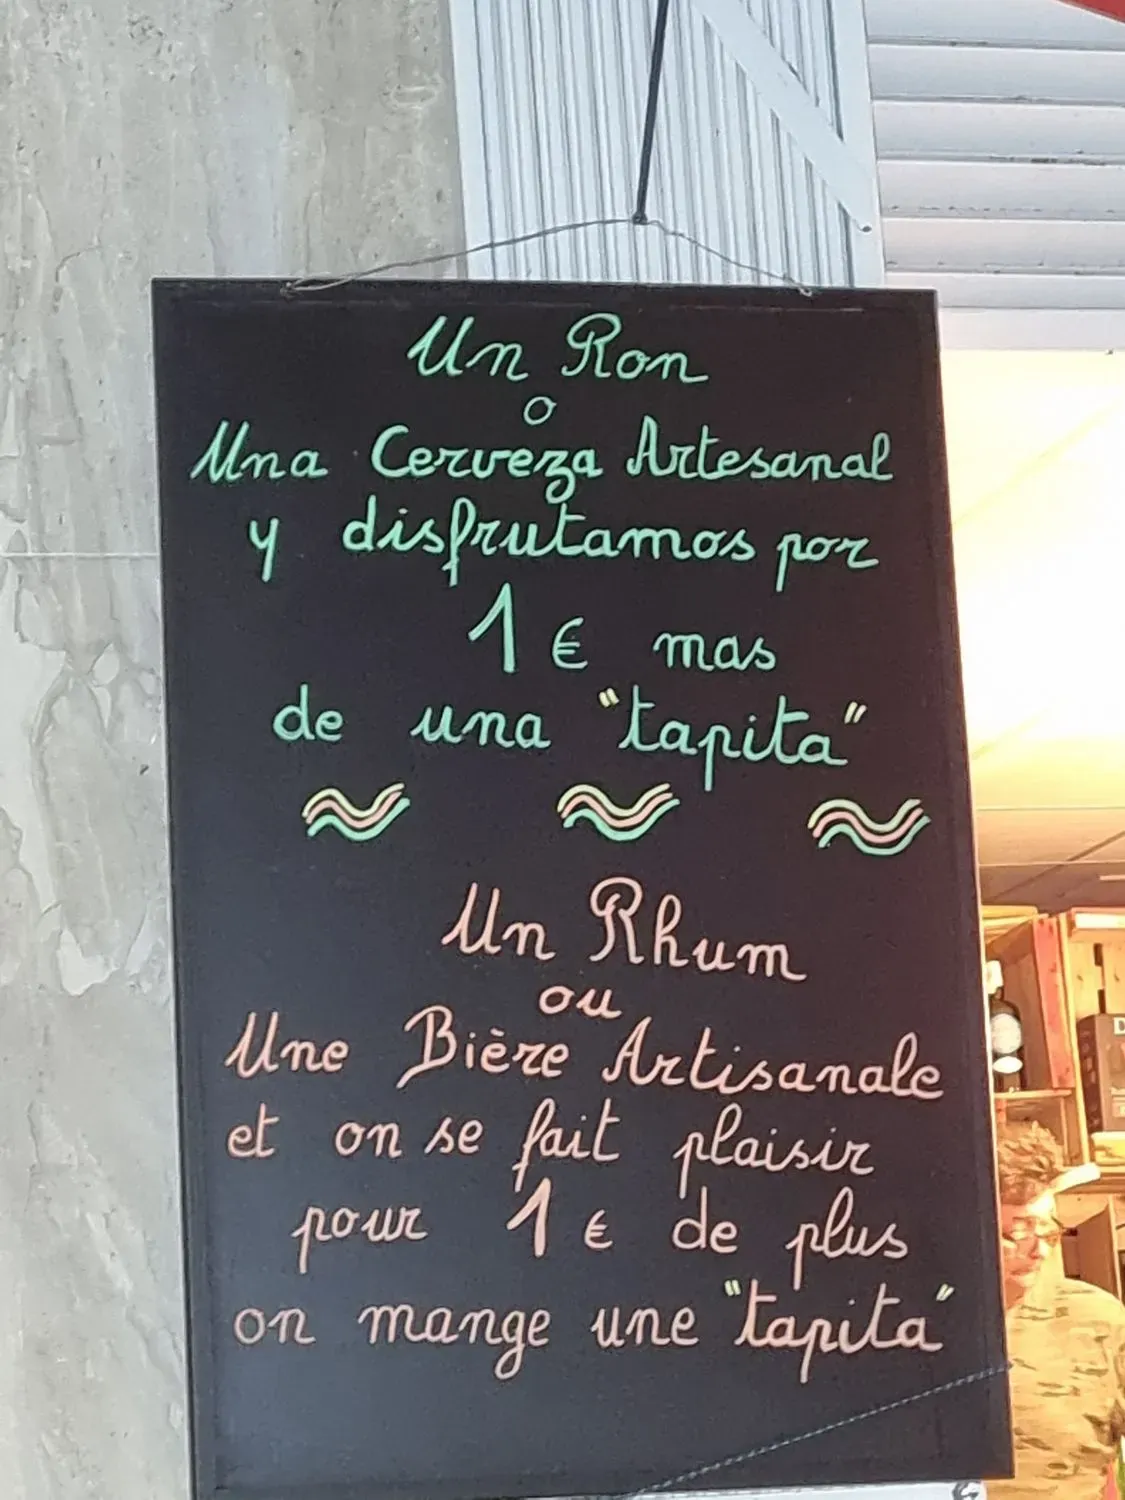 Un Ron
o
Una Cerveza Artesanal
y disfrutamos por
1 € mas
de una "tapita"
Un Rhum
ou
Une Bière Artisanale
et on se fait plaisir
pour 1 € de plus
on mange une "tapita"